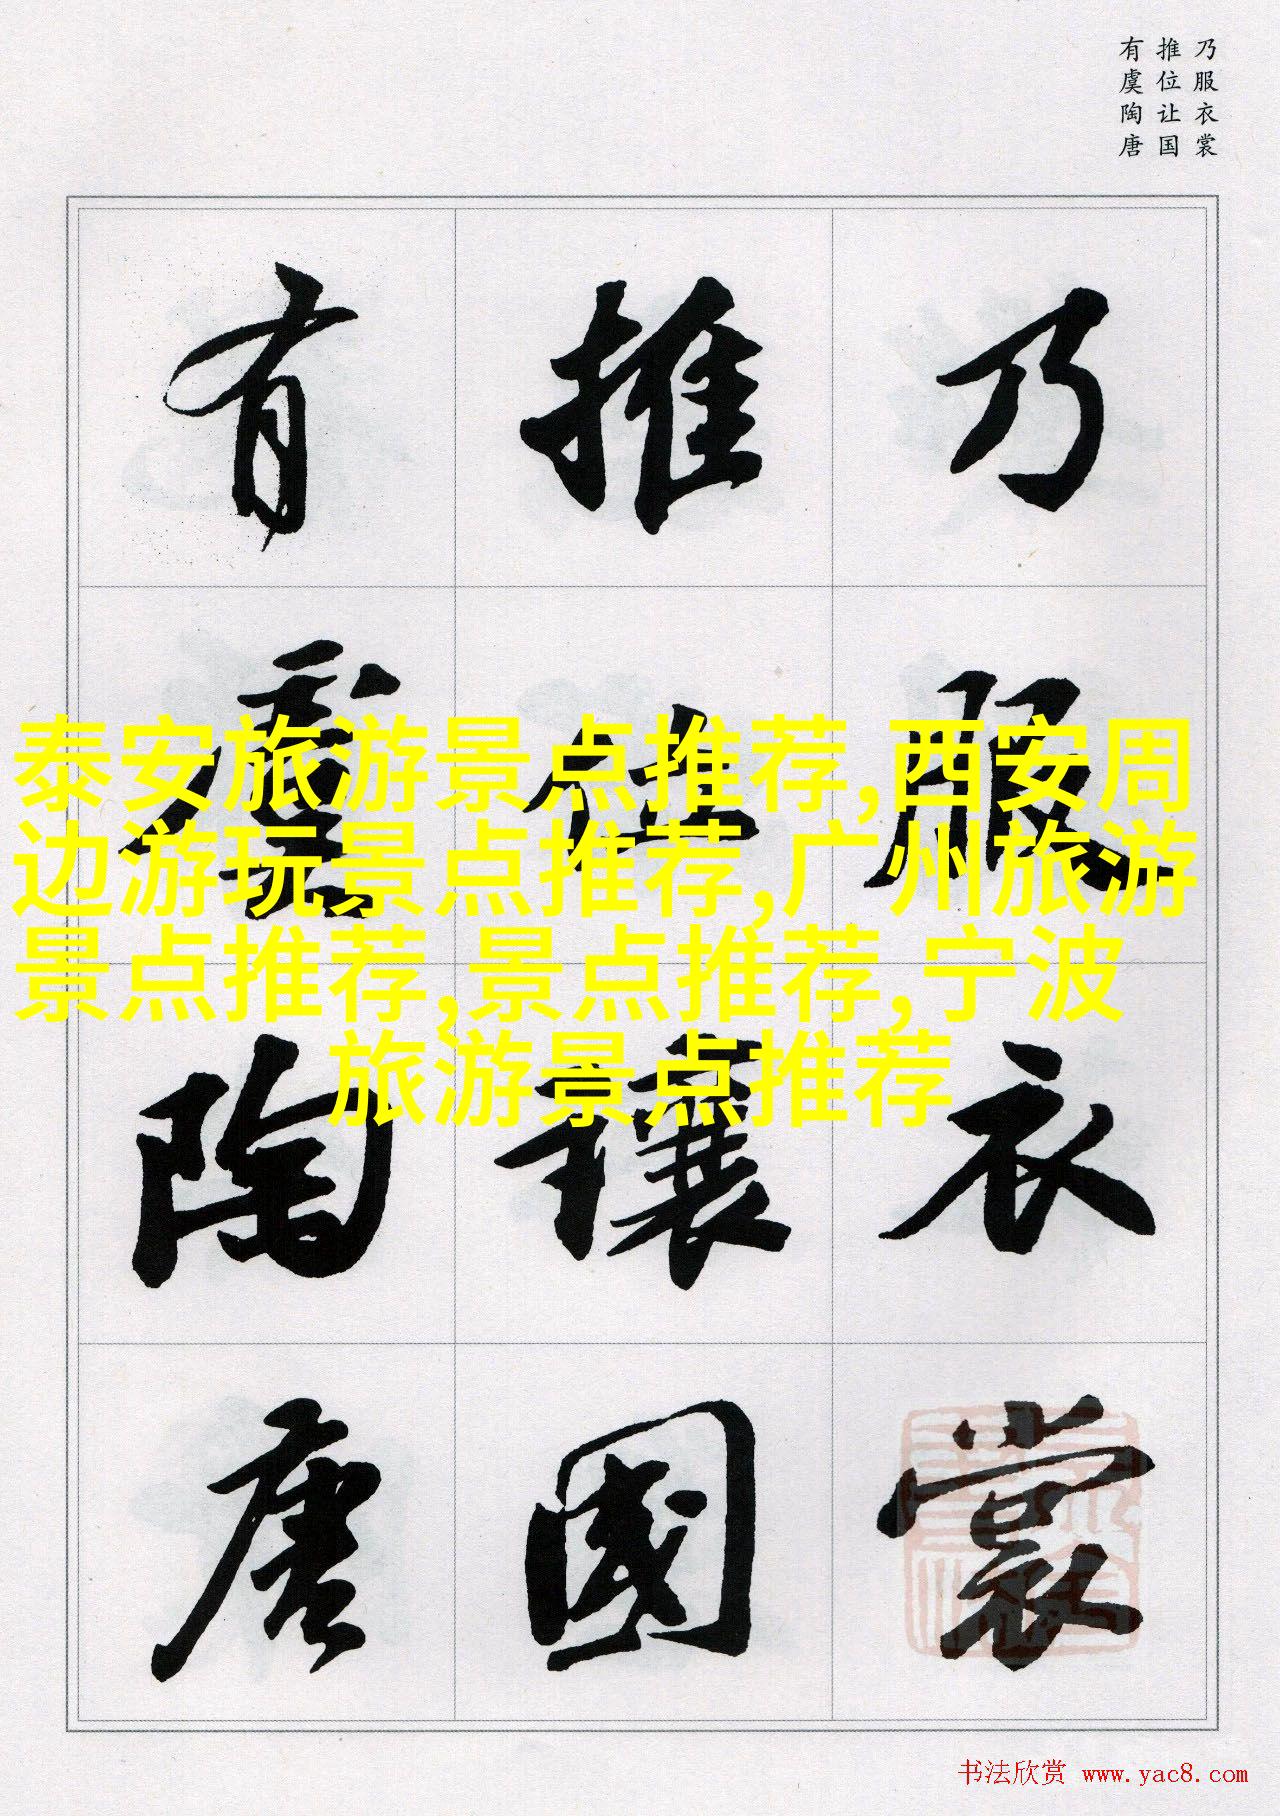 乃服衣裳
推位让国
有虞陶唐
乃服衣裳
推位讓國
有虞陶唐
泰安旅游景点推荐,西安周
边游玩景点推荐,广州旅游
景点推荐,景点推荐,宁波
旅游景点推荐
书法欣赏 www.yac8.com